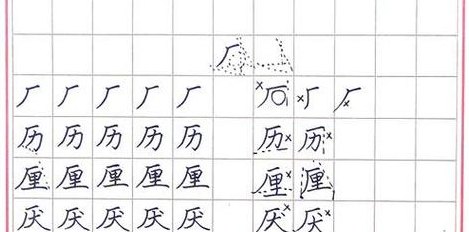 厂
厂 厂 厂 厂 厂 厂 厂 厂
历 历 历 历 历 历 历
厘 厘 厘 厘 厘 厘 厘
厌 厌 厌 厌 厌 厌 厌